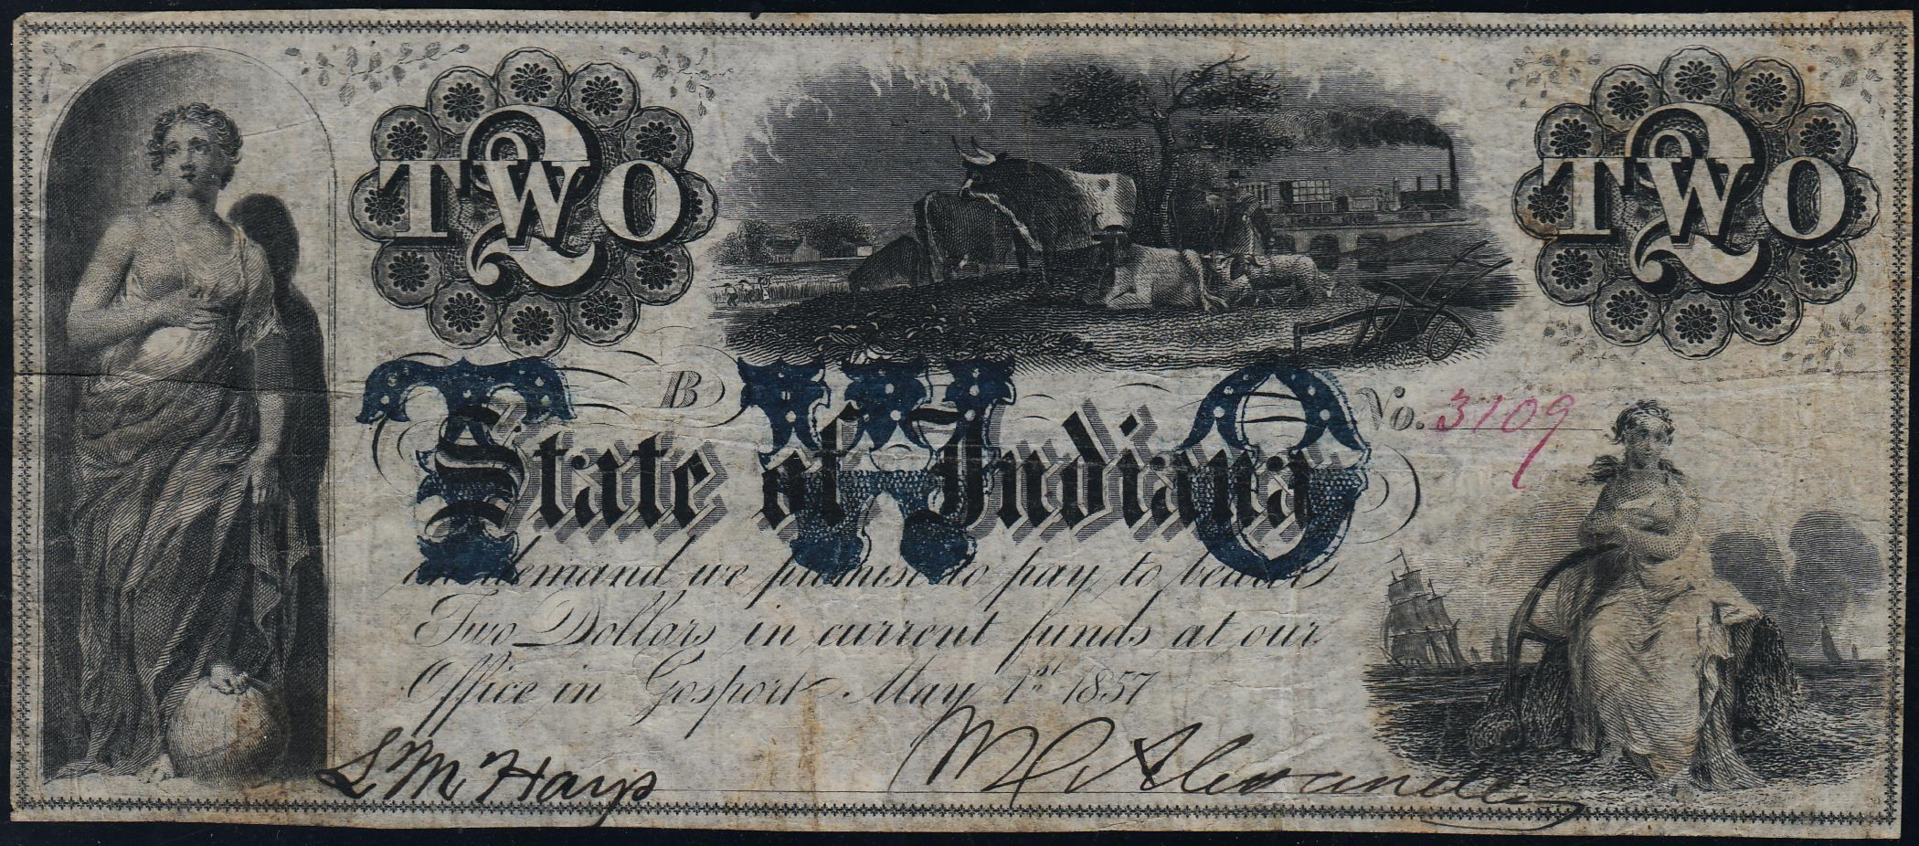 2 TWO
2 TWO
TWO
B
No. 3109
State of Indiana
on demand we promise to pay to bearer
Two Dollars in current funds at our
Office in Gosport May 1st 1857
L M Hays
Alexander